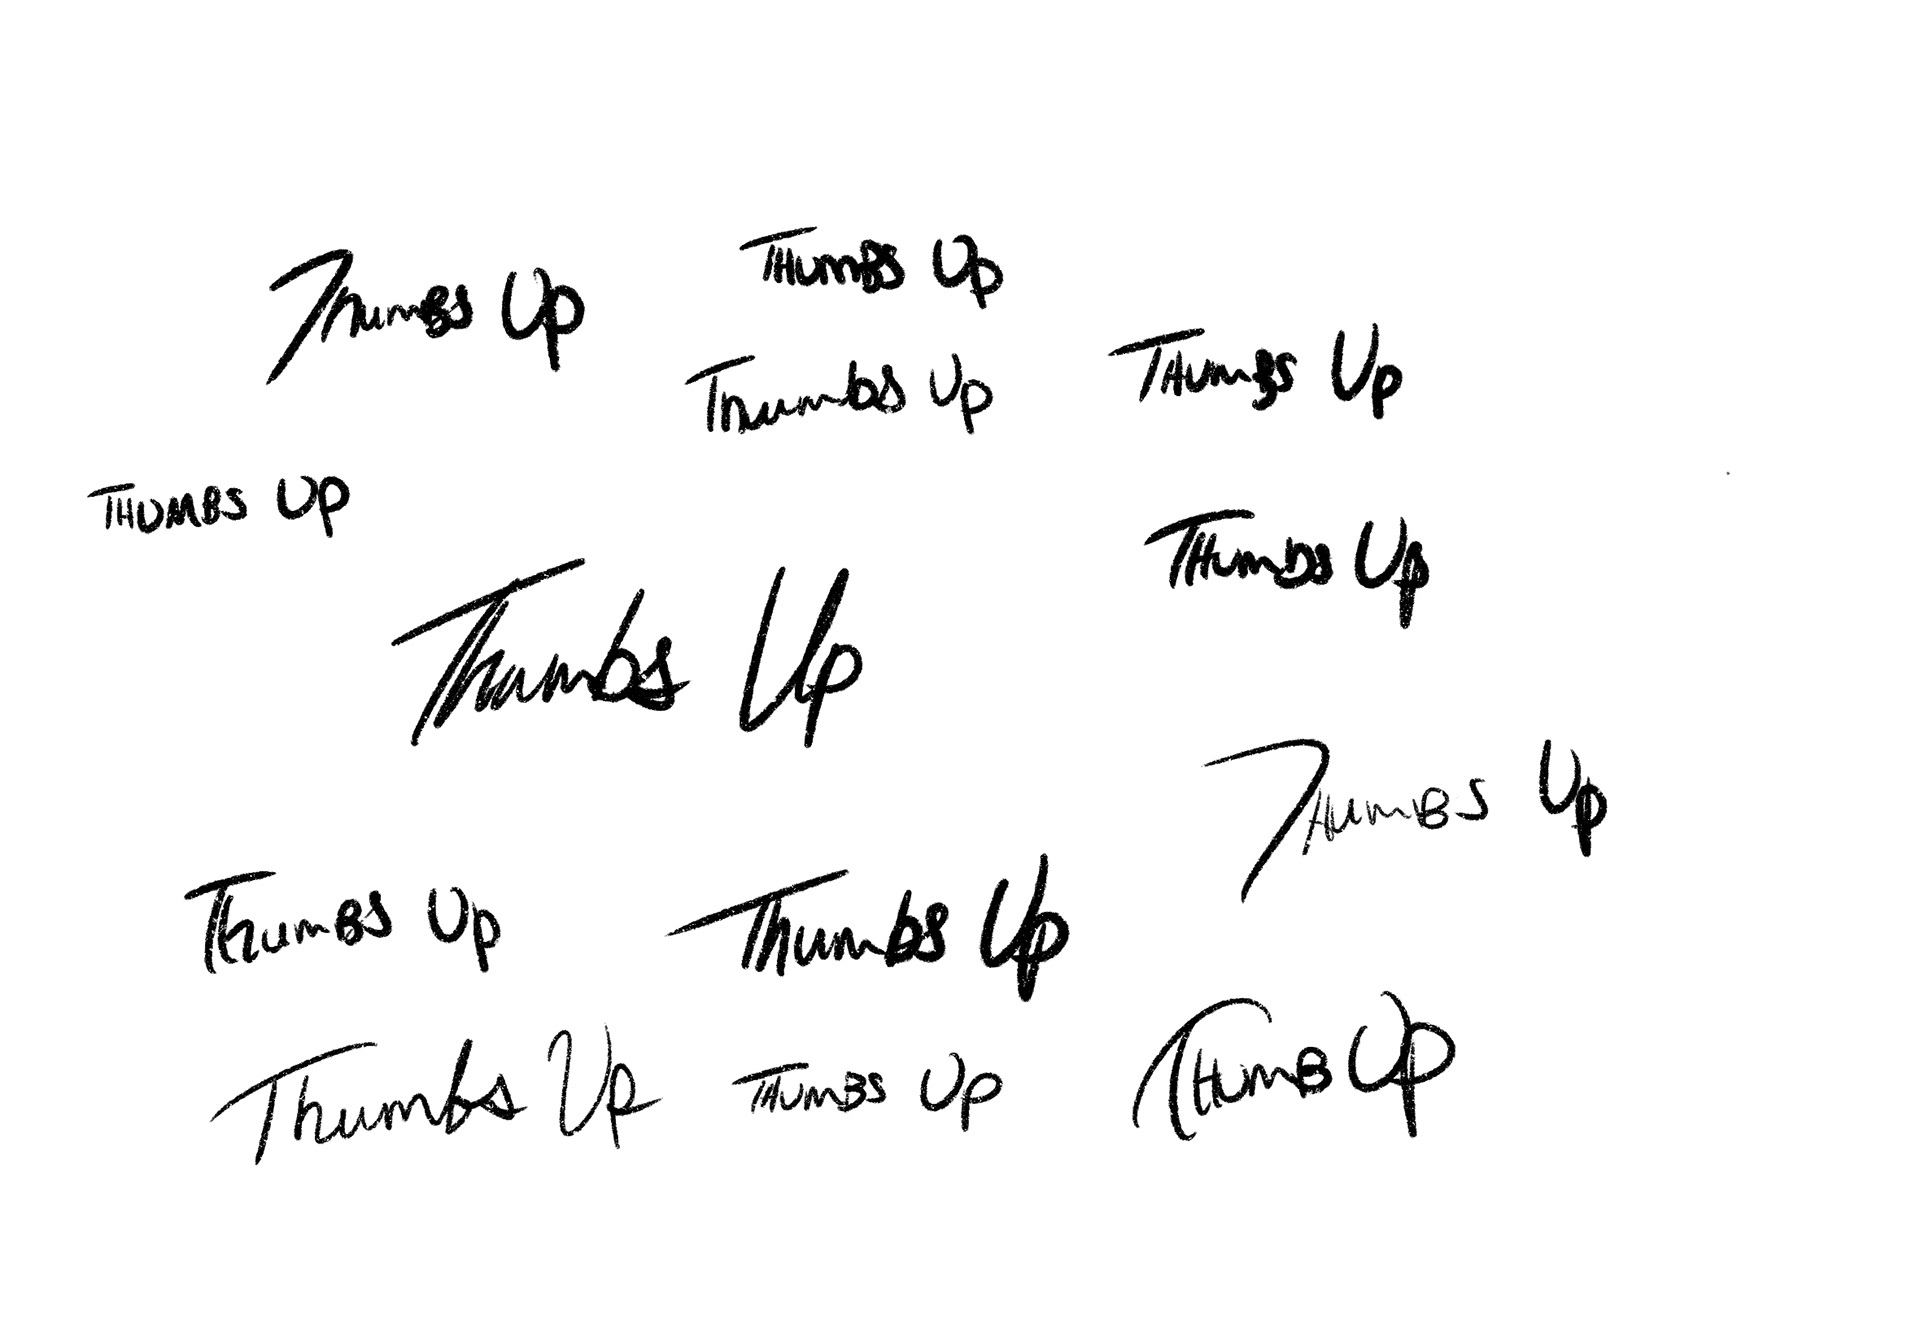 Thumbs Up
THUMBS Up
THUMBS Up
Thumbs Up
THUMBS UP
THUMBS Up
Thumbs Up
THUMBS Up
Thumbs Up
Thumbs Up
THUMB UP
Thumbs Up
THUMBS Up